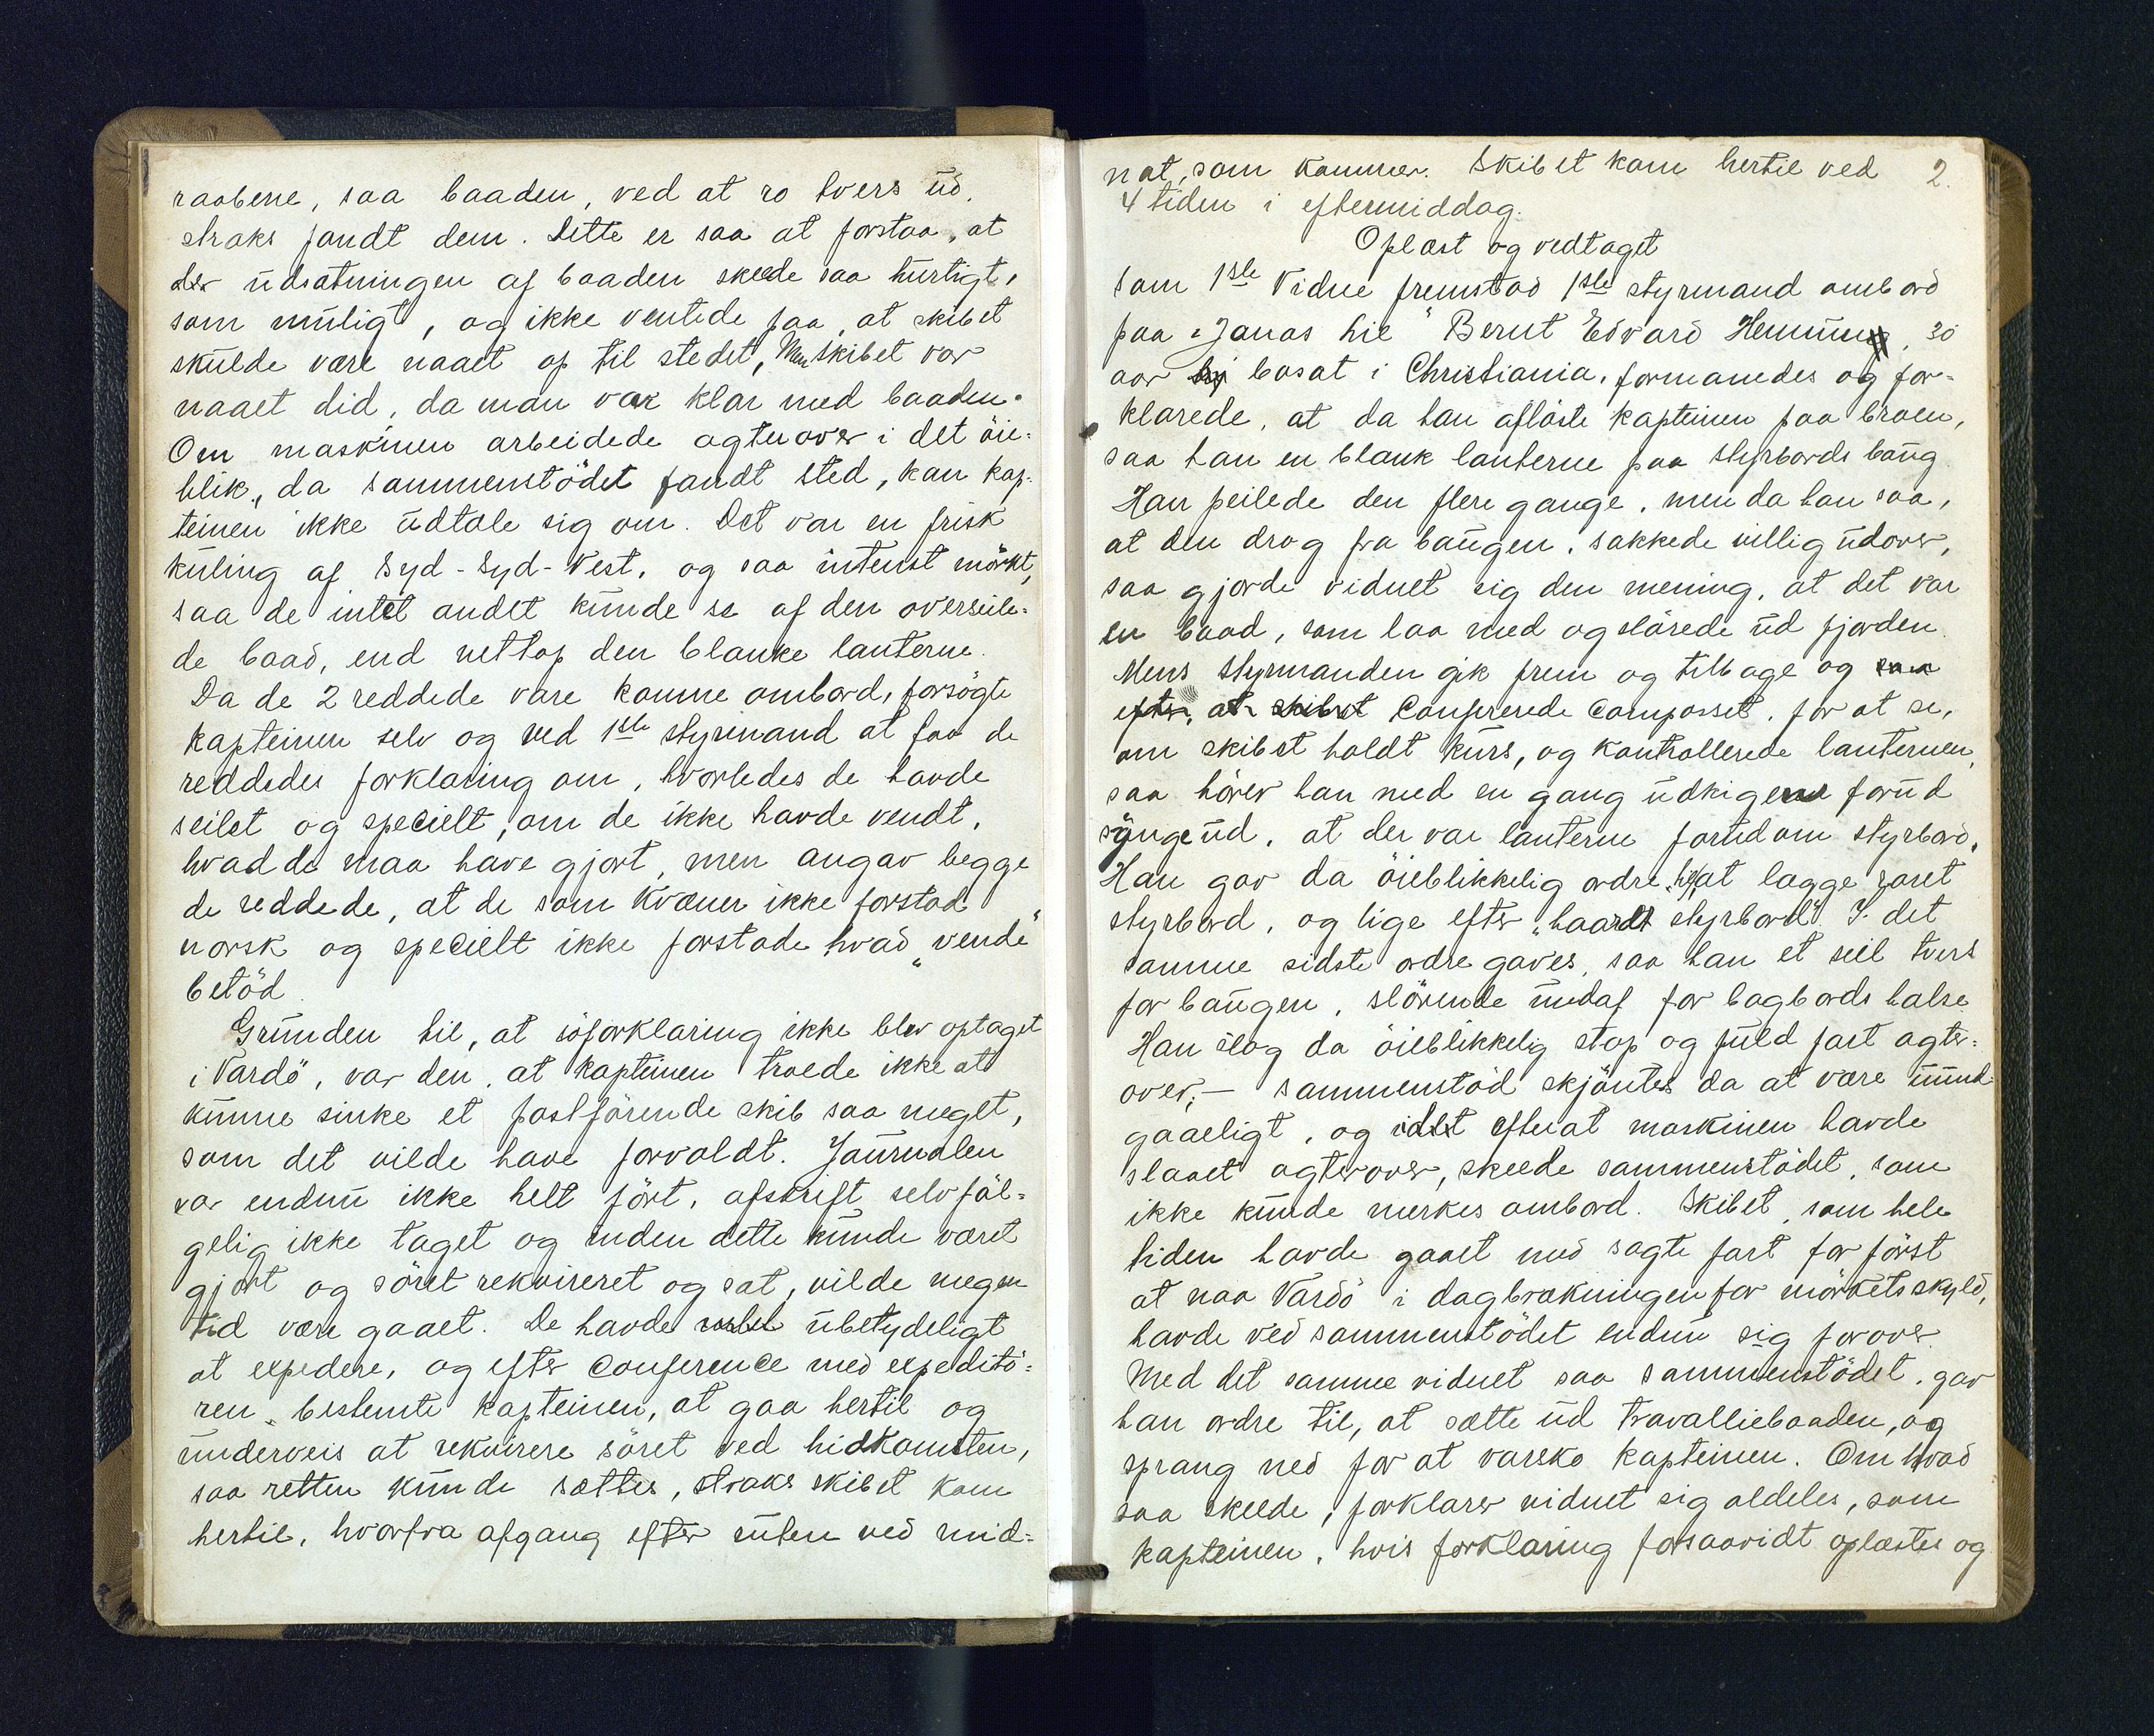 raabene, saa baaden, ved at ro tvers ud,
straks fandt dem. Dette er saa at forstaa, at
der udsætningen af baaden skede saa hurtigt,
som muligt, og ikke ventede paa, at skibet
skulde være naaet op til stedet, Men skibet var
naaet did, da man var klar med baaden.
Om maskinen arbeidede agterover i det öie-
blik, da sammenstödet fandt sted, kan kap-
teinen ikke udtale sig om. Det var en frisk
kuling af Syd-Syd-Vest, og saa intenst mörkt,
saa de intet andet kunde se af den overseile-
de baad, end netop den blanke lanterne.
Da de 2 reddede vare komne ombord, forsögte
kapteinen selv og ved 1ste styrmand at faa de
reddedes forklaring om, hvorledes de havde
seilet og specielt, om de ikke havde vendt,
hvad de maa have gjort, men angav begge
de reddede, at de som Kvæner ikke forstod
norsk og specielt ikke forstode hvad „vende"
betöd.
Grunden til, at söforklaring ikke blev optaget
i Vardö, var den, at kapteinen troede ikke at
kunne sinke et postförende skib saa meget,
som det vilde have forvoldt. Journalen
var endnu ikke helt fört, afskrift selvföl-
gelig ikke taget og inden dette kunde været
gjort og söret rekvireret og sat, vilde megen
tid være gaaet. De havde ubetydeligt
at expedere, og efter Conference med expeditö-
ren, bestemte kapteinen, at gaa hertil og
underveis at rekvirere söret ved hidkomsten,
saa retten kunde sættes, straks skibet kom
hertil, hvorfra afgang efter ruten ved mid-
nat, som kommer. Skibet kom hertil ved 2.
4 tiden i eftermiddag.
Oplæst og vedtaget
Som 1ste Vidne fremstod 1ste styrmand ombord
paa „Jonas Lie" Bernt Edvard, 30
aar bosat i Christiania, formanedes og for-
klarede, at da han aflöste kapteinen paa broen,
saa han en blank lanterne paa styrbords boug.
Han peilede den flere gange, men da han saa,
at den drog fra bougen, sakkede villig udover,
saa gjorde vidnet sig den mening, at det var
en baad, som laa med og slörede ud fjorden.
Mens styrmanden gik frem og tilbage og saa
efter, at skibet Confererede Compasset, for at se,
om skibet holdt kurs, og kontrollerede lanternen,
saa hörer han med en gang udkigen forud
synge ud, at der var lanterne forud om styrbord.
Han gav da öieblikkelig ordre til at lægge roret
styrbord, og lige efter „haardt styrbord". I det
samme sidste ordre gaves, saa han et seil tvers
for bougen, slörende undaf for bagbords halse.
Han slog da öieblikkelig stop og fuld fart agter-
over, — sammenstöd skjöntes da at være uund-
gaaeligt, og idet efterat maskinen havde
slaaet agterover, skede sammenstödet, som
ikke kunde merkes ombord. Skibet, som hele
tiden havde gaaet med sagte fart for först
at naa Vardö i dagbrækningen for mörkets skyld,
havde ved sammenstödet endnu sig forover.
Med det samme vidnet saa sammenstödet, gav
han ordre til, at sætte ud travalliebaaden, og
sprang ned for at varsko kapteinen. Om hvad
saa skede, forklarer vidnet sig aldeles, som
kapteinen, hvis forklaring forsaavidt oplæstes og